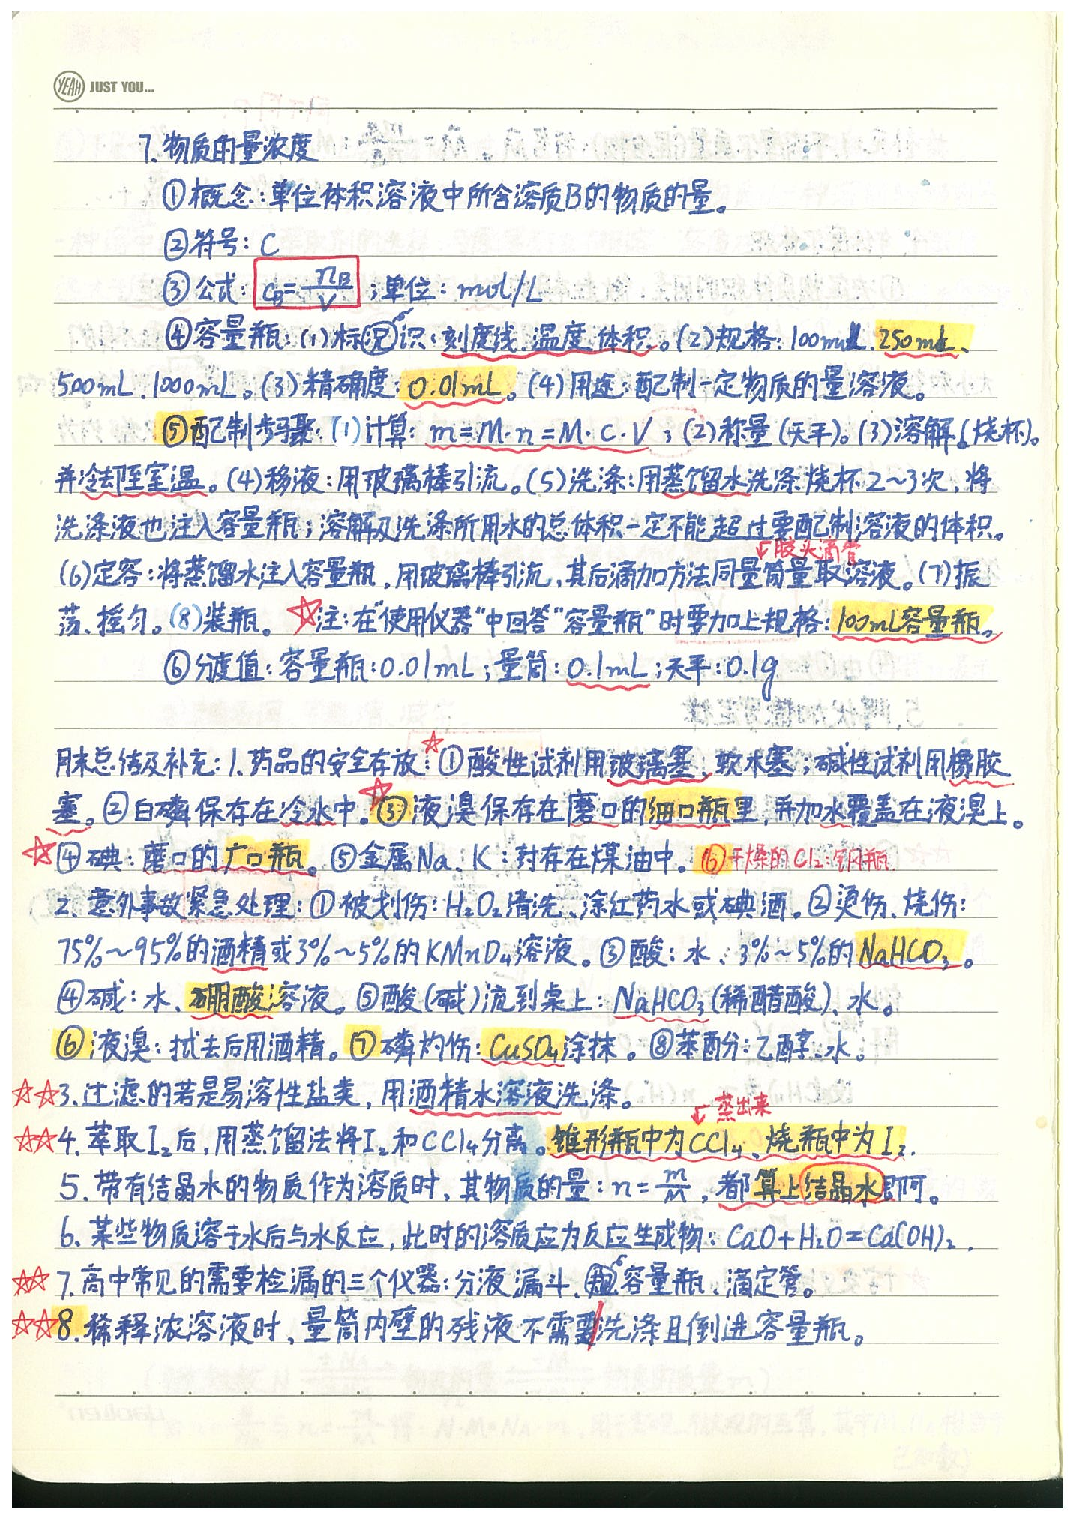 YEAH JUST YOU...
7. 物质的量浓度
①概念:单位体积溶液中所含溶质B的物质的量。
②符号: C
③公式: c_B=n_B/V ;单位: mol/L
④容量瓶:(1)标识:刻度线、温度、体积。(2)规格:100mL、250mL、
500mL、1000mL。(3)精确度:0.01mL。(4)用途:配制一定物质的量溶液。
⑤配制步骤:(1)计算: m=M·n=M·C·V ;(2)称量(天平)。(3)溶解(烧杯)。
并冷却至室温。(4)移液:用玻璃棒引流。(5)洗涤:用蒸馏水洗涤烧杯2~3次,将
洗涤液也注入容量瓶;溶解及洗涤所用水的总体积一定不能超过要配制溶液的体积。
胶头滴管
(6)定容:将蒸馏水注入容量瓶,用玻璃棒引流,其后滴加方法同量筒量取溶液。(7)振
荡、摇匀。(8)装瓶。☆注:在“使用仪器”中回答“容量瓶”时要加上规格:100mL容量瓶。
⑥分度值:容量瓶:0.01mL;量筒:0.1mL;天平:0.1g
月末总结及补充:1.药品的安全存放:☆①酸性试剂用玻璃塞、软木塞;碱性试剂用橡胶
塞。②白磷保存在冷水中。☆③液溴保存在磨口的细口瓶里,并加水覆盖在液溴上。
☆④碘:磨口的广口瓶。⑤金属Na、K:封存在煤油中。⑥干燥的Cl₂:钢瓶
2.意外事故紧急处理:①被划伤:H₂O₂清洗、涂红药水或碘酒。②烫伤、烧伤:
75%~95%的酒精或3%~5%的KMnO₄溶液。③酸:水、3%~5%的NaHCO₃。
④碱:水、硼酸溶液。⑤酸(碱)流到桌上:NaHCO₃(稀醋酸)、水。
⑥液溴:拭去后用酒精。⑦磷灼伤:CuSO₄涂抹。⑧苯酚:乙醇、水。
☆☆3.过滤的若是易溶性盐类,用酒精水溶液洗涤。
蒸出来
☆☆4.萃取I₂后,用蒸馏法将I₂和CCl₄分离。锥形瓶中为CCl₄、烧瓶中为I₂.
5.带有结晶水的物质作为溶质时,其物质的量:n=m/M,都算上结晶水即可。
6.某些物质溶于水后与水反应,此时的溶质应为反应生成物:CaO+H₂O=Ca(OH)₂.
☆☆7.高中常见的需要检漏的三个仪器:分液漏斗、容量瓶、滴定管。
☆☆8.稀释浓溶液时,量筒内壁的残液不需要洗涤且倒进容量瓶。